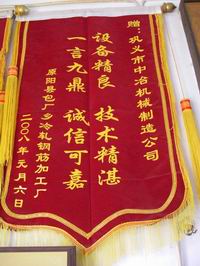 赠:巩义市中冶机械制造公司
设备精良 技术精湛
一言九鼎 诚信可嘉
原阳县包厂乡冷轧钢筋加工厂
二〇〇八年元月六日